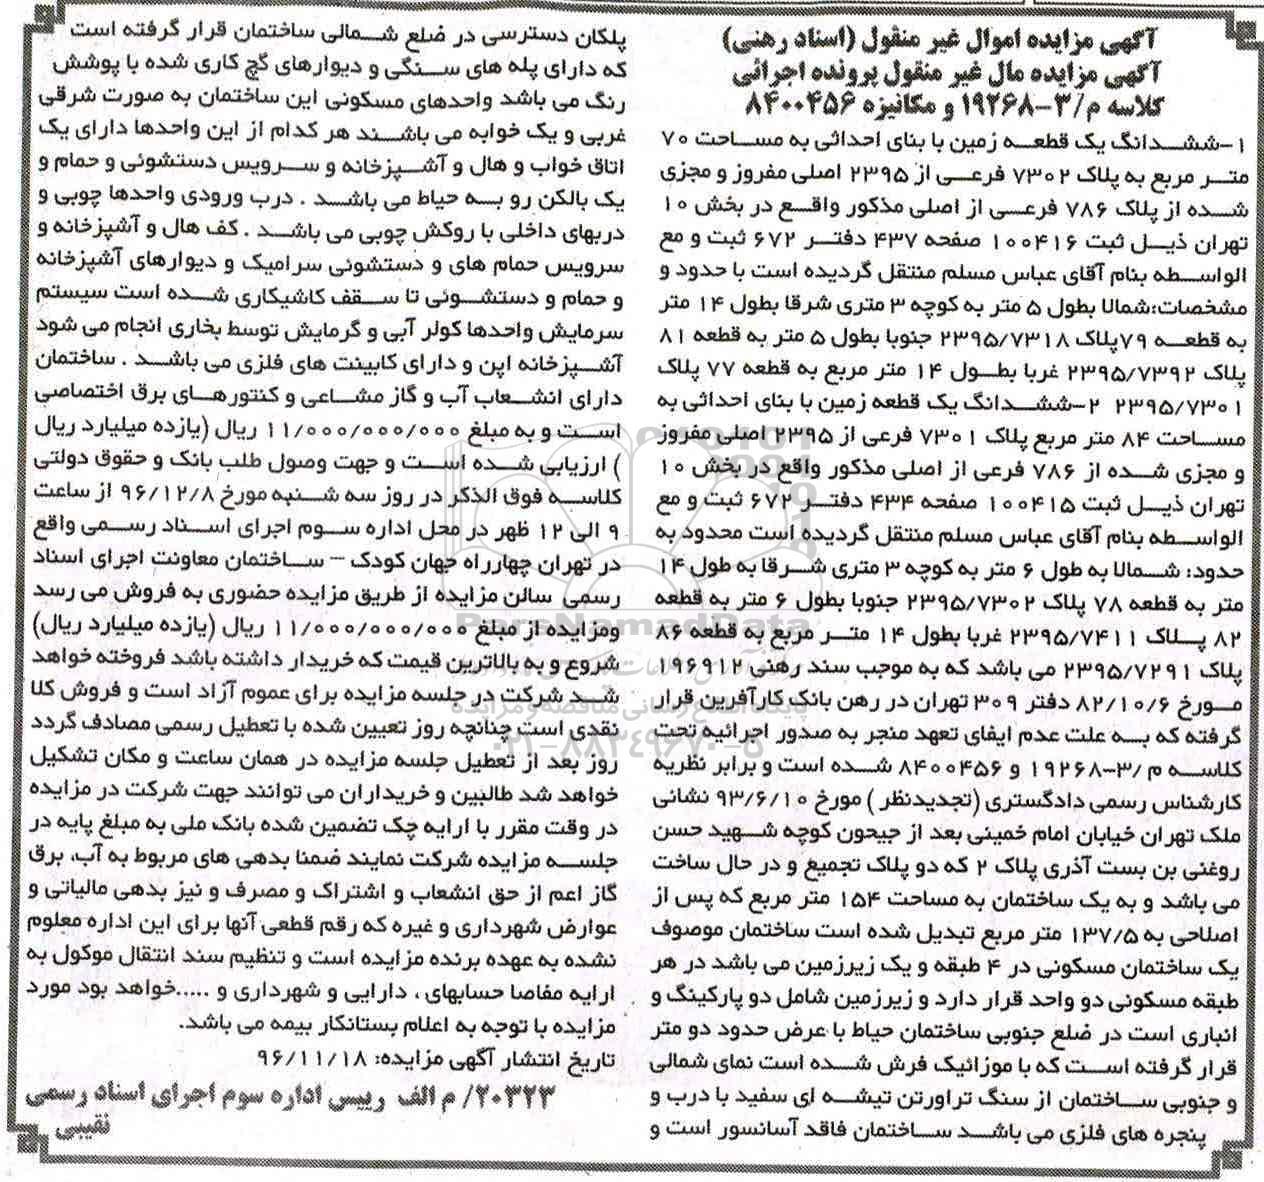 آگهی مزایده اموال غیر منقول (اسناد رهنی)
آگهی مزایده مال غیر منقول پرونده اجرائی
کلاسه م/۳-۱۹۲۶۸ و مکانیزه ۸۴۰۰۴۵۶
۱-ششدانگ یک قطعه زمین با بنای احداثی به مساحت ۷۰
متر مربع به پلاک ۷۳۰۲ فرعی از ۲۳۹۵ اصلی مفروز و مجزی
شده از پلاک ۷۸۶ فرعی از اصلی مذکور واقع در بخش ۱۰
تهران ذیل ثبت ۱۰۰۴۱۶ صفحه ۴۳۷ دفتر ۶۷۲ ثبت و مع
الواسطه بنام آقای عباس مسلم منتقل گردیده است با حدود و
مشخصات:شمالا بطول ۵ متر به کوچه ۳ متری شرقا بطول ۱۴ متر
به قطعه ۷۹پلاک ۲۳۹۵/۷۳۱۸ جنوبا بطول ۵ متر به قطعه ۸۱
پلاک ۲۳۹۵/۷۳۹۲ غربا بطول ۱۴ متر مربع به قطعه ۷۷ پلاک
۲۳۹۵/۷۳۰۱ ۲-ششدانگ یک قطعه زمین با بنای احداثی به
مساحت ۸۴ متر مربع پلاک ۷۳۰۱ فرعی از ۲۳۹۵ اصلی مفروز
و مجزی شده از ۷۸۶ فرعی از اصلی مذکور واقع در بخش ۱۰
تهران ذیل ثبت ۱۰۰۴۱۵ صفحه ۴۳۴ دفتر ۶۷۲ ثبت و مع
الواسطه بنام آقای عباس مسلم منتقل گردیده است محدود به
حدود: شمالا به طول ۶ متر به کوچه ۳ متری شرقا به طول ۱۴
متر به قطعه ۷۸ پلاک ۲۳۹۵/۷۳۰۲ جنوبا بطول ۶ متر به قطعه
۸۲ پلاک ۲۳۹۵/۷۴۱۱ غربا بطول ۱۴ متر مربع به قطعه ۸۶
پلاک ۲۳۹۵/۷۲۹۱ می باشد که به موجب سند رهنی ۱۹۶۹۱۲
مورخ ۸۲/۱۰/۶ دفتر ۳۰۹ تهران در رهن بانک کارآفرین قرار
گرفته که به علت عدم ایفای تعهد منجر به صدور اجرائیه تحت
کلاسه م /۳-۱۹۲۶۸ و ۸۴۰۰۴۵۶ شده است و برابر نظریه
کارشناس رسمی دادگستری (تجدیدنظر) مورخ ۹۳/۶/۱۰ نشانی
ملک تهران خیابان امام خمینی بعد از جیحون کوچه شهید حسن
روغنی بن بست آذری پلاک ۲ که دو پلاک تجمیع و در حال ساخت
می باشد و به یک ساختمان به مساحت ۱۵۴ متر مربع که پس از
اصلاحی به ۱۳۷/۵ متر مربع تبدیل شده است ساختمان موصوف
یک ساختمان مسکونی در ۴ طبقه و یک زیرزمین می باشد در هر
طبقه مسکونی دو واحد قرار دارد و زیرزمین شامل دو پارکینگ و
انباری است در ضلع جنوبی ساختمان حیاط با عرض حدود دو متر
قرار گرفته است که با موزائیک فرش شده است نمای شمالی
و جنوبی ساختمان از سنگ تراورتن تیشه ای سفید با درب و
پنجره های فلزی می باشد ساختمان فاقد آسانسور است و
پلکان دسترسی در ضلع شمالی ساختمان قرار گرفته است
که دارای پله های سنگی و دیوارهای گچ کاری شده با پوشش
رنگ می باشد واحدهای مسکونی این ساختمان به صورت شرقی
غربی و یک خوابه می باشند هر کدام از این واحدها دارای یک
اتاق خواب و هال و آشپزخانه و سرویس دستشوئی و حمام و
یک بالکن رو به حیاط می باشد . درب ورودی واحدها چوبی و
دربهای داخلی با روکش چوبی می باشد . کف هال و آشپزخانه و
سرویس حمام های و دستشوئی سرامیک و دیوارهای آشپزخانه
و حمام و دستشوئی تا سقف کاشیکاری شده است سیستم
سرمایش واحدها کولر آبی و گرمایش توسط بخاری انجام می شود
آشپزخانه اپن و دارای کابینت های فلزی می باشد . ساختمان
دارای انشعاب آب و گاز مشاعی و کنتورهای برق اختصاصی
است و به مبلغ ۱۱/۰۰۰/۰۰۰/۰۰۰ ریال (یازده میلیارد ریال
) ارزیابی شده است و جهت وصول طلب بانک و حقوق دولتی
کلاسه فوق الذکر در روز سه شنبه مورخ ۹۶/۱۲/۸ از ساعت
۹ الی ۱۲ ظهر در محل اداره سوم اجرای اسناد رسمی واقع
در تهران چهارراه جهان کودک – ساختمان معاونت اجرای اسناد
رسمی سالن مزایده از طریق مزایده حضوری به فروش می رسد
ومزایده از مبلغ ۱۱/۰۰۰/۰۰۰/۰۰۰ ریال (یازده میلیارد ریال)
شروع و به بالاترین قیمت که خریدار داشته باشد فروخته خواهد
شد شرکت در جلسه مزایده برای عموم آزاد است و فروش کلا
نقدی است چنانچه روز تعیین شده با تعطیل رسمی مصادف گردد
روز بعد از تعطیل جلسه مزایده در همان ساعت و مکان تشکیل
خواهد شد طالبین و خریداران می توانند جهت شرکت در مزایده
در وقت مقرر با ارایه چک تضمین شده بانک ملی به مبلغ پایه در
جلسه مزایده شرکت نمایند ضمنا بدهی های مربوط به آب، برق
گاز اعم از حق انشعاب و اشتراک و مصرف و نیز بدهی مالیاتی و
عوارض شهرداری و غیره که رقم قطعی آنها برای این اداره معلوم
نشده به عهده برنده مزایده است و تنظیم سند انتقال موکول به
ارایه مفاصا حسابهای ، دارایی و شهرداری و .....خواهد بود مورد
مزایده با توجه به اعلام بستانکار بیمه می باشد.
تاریخ انتشار آگهی مزایده: ۹۶/۱۱/۱۸
۲۰۳۲۳/ م الف رییس اداره سوم اجرای اسناد رسمی
نقیبی
ParsNamadData
پایگاه اطلاع رسانی مناقصه و مزایده
۰۲۱-۸۸۳۴۹۶۷۰-۵